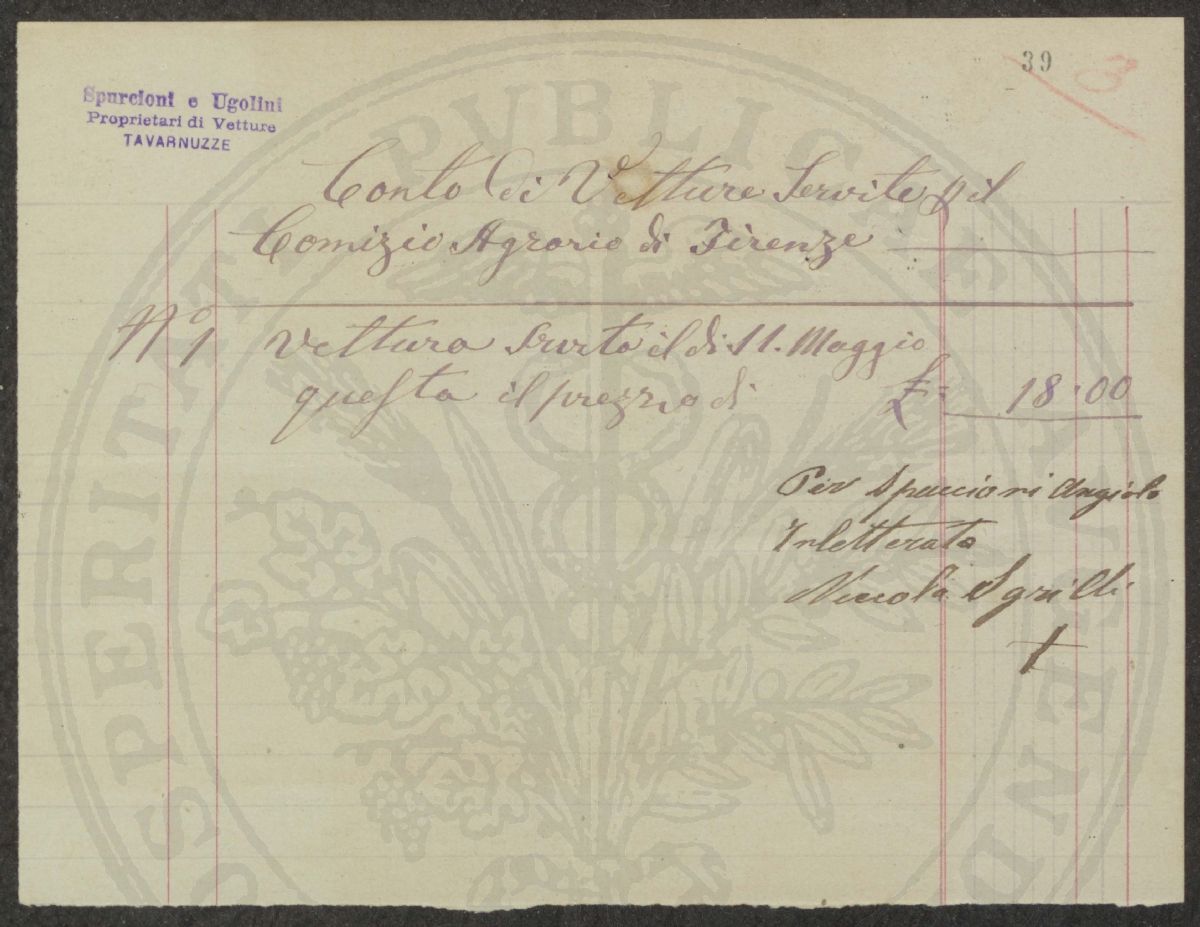 39
3
Spurcioni e Ugolini
Proprietari di Vetture
TAVARNUZZE
Conto di Vetture Servite p il
Comizio Agrario di Firenze
No 1 Vettura Srvita il di 11. Maggio
questa il prezzo di £ = 18.00
Per Spuccioni Angiolo
Inletterato
Niccola Sgrilli
PROSPERITATI PVBLICAE AVGENDAE